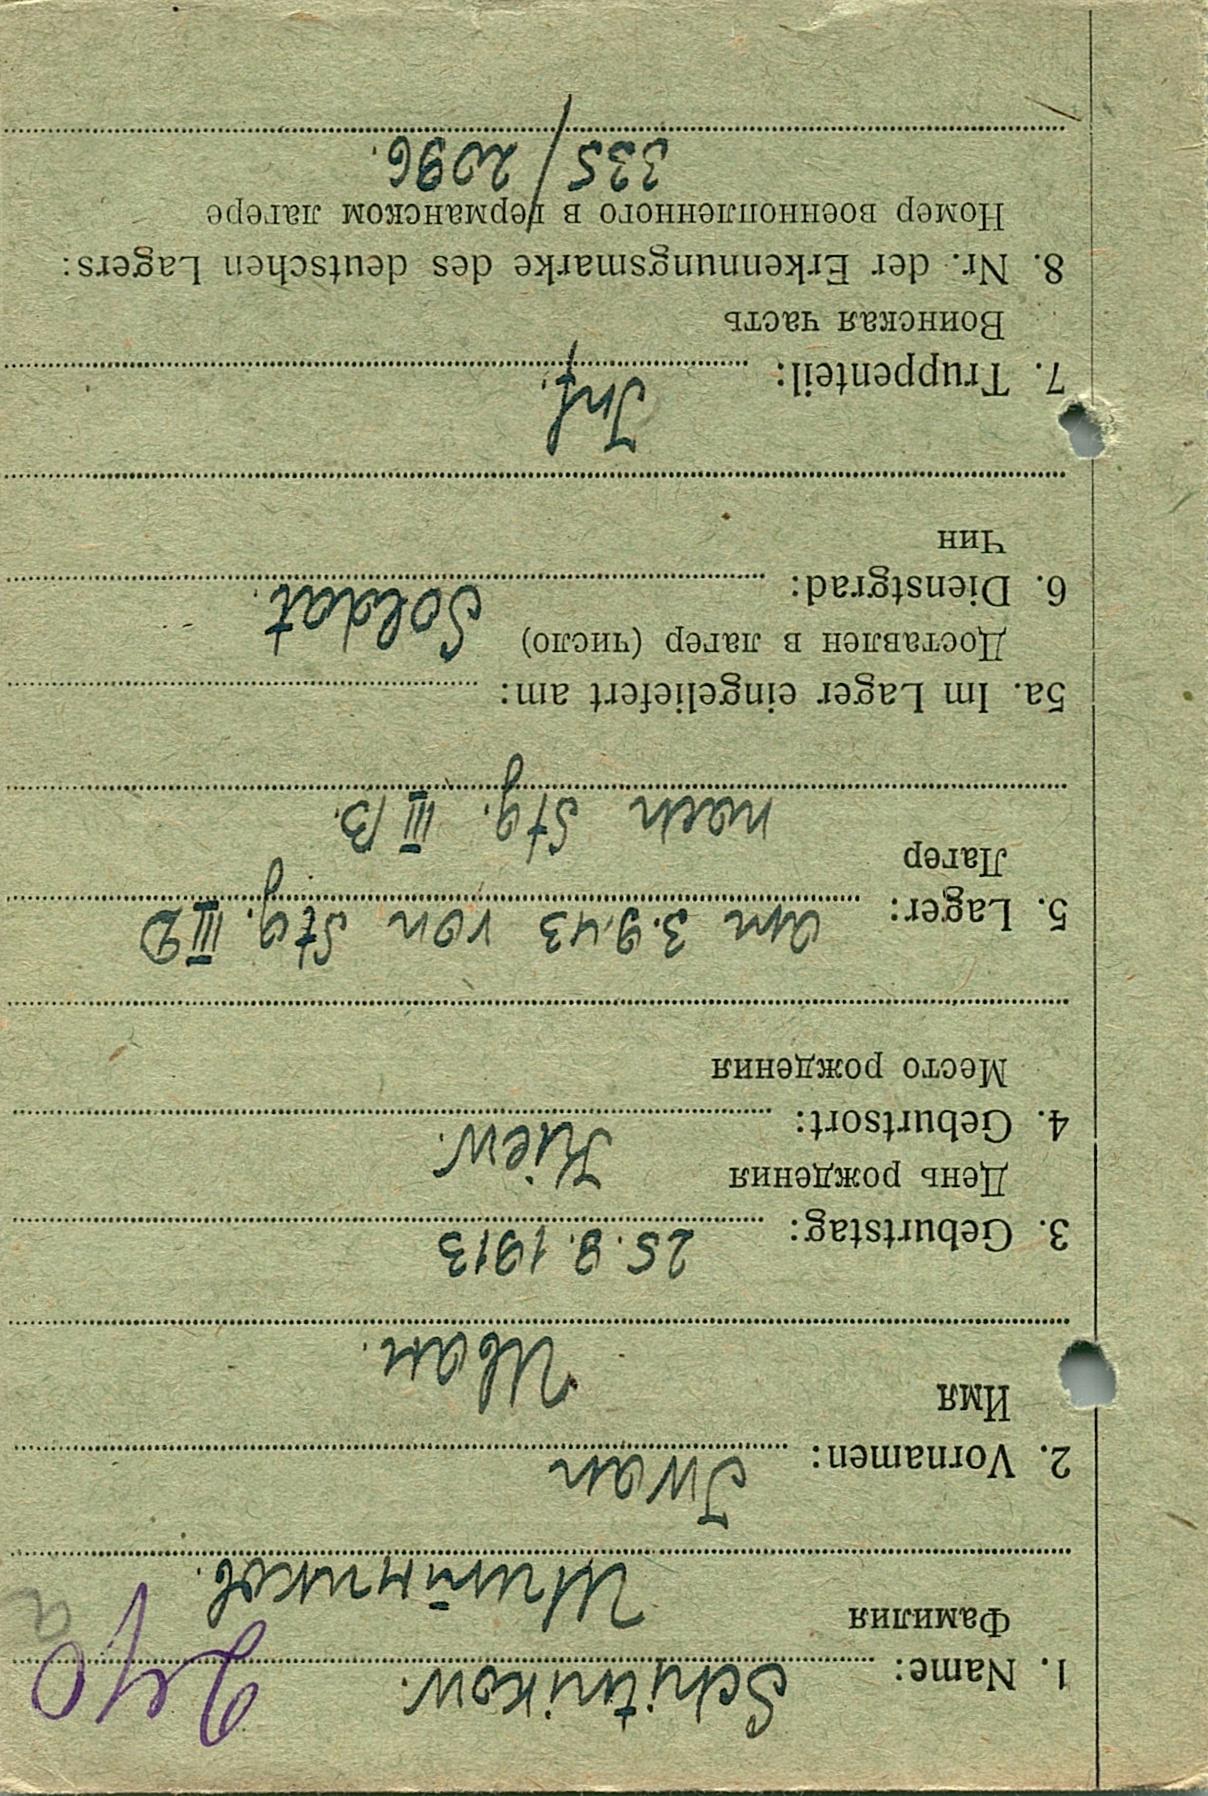 1. Name: Schitnikow.
Фамилия Шитников.
2. Vornamen: Iwan
Имя Иван.
3. Geburtstag: 25.8.1913
День рождения
4. Geburtsort: Kiew.
Место рождения
5. Lager: am 3.9.43 von Stg. III D
Лагер nach Stg. III B.
5a. Im Lager eingeliefert am:
Доставлен в лагер (число)
6. Dienstgrad: Soldat.
Чин
7. Truppenteil: Inf.
Воинская часть
8. Nr. der Erkennungsmarke des deutschen Lagers:
Номер военнопленного в германском лагере
335/2096.